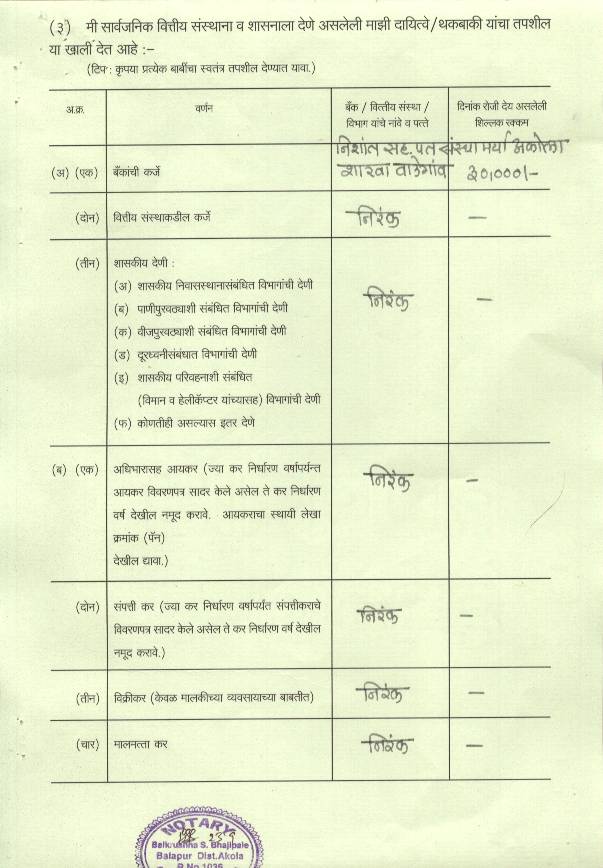 (३) मी सार्वजनिक वित्तीय संस्थाना व शासनाला देणे असलेली माझी दायित्वे/थकबाकी यांचा तपशील
या खाली देत आहे :–
(टिप : कृपया प्रत्येक बाबींचा स्वतंत्र तपशील देण्यात यावा.)
अ.क्र. वर्णन बँक / वित्तीय संस्था / दिनांक रोजी देय असलेली
विभाग यांचे नांवे व पत्ते शिल्लक रक्कम
निशांत सह. पत संस्था मर्या अकोला
(अ) (एक) बँकांची कर्जे शाखा वाडेगांव ३०,०००/-
(दोन) वित्तीय संस्थाकडील कर्जे निरंक —
(तीन) शासकीय देणी :
(अ) शासकीय निवासस्थानासंबंधित विभागांची देणी
(ब) पाणीपुरवठ्याशी संबंधित विभागांची देणी निरंक —
(क) वीजपुरवठ्याशी संबंधित विभागांची देणी
(ड) दूरध्वनीसंबंधात विभागांची देणी
(इ) शासकीय परिवहनाशी संबंधित
(विमान व हेलीकॅप्टर यांच्यासह) विभागांची देणी
(फ) कोणतीही असल्यास इतर देणे
(ब) (एक) अधिभारासह आयकर (ज्या कर निर्धारण वर्षापर्यन्त निरंक —
आयकर विवरणपत्र सादर केले असेल ते कर निर्धारण
वर्ष देखील नमूद करावे. आयकराचा स्थायी लेखा
क्रमांक (पॅन)
देखील द्यावा.)
(दोन) संपत्ती कर (ज्या कर निर्धारण वर्षापर्यंत संपत्तीकराचे निरंक —
विवरणपत्र सादर केले असेल ते कर निर्धारण वर्ष देखील
नमूद करावे.)
(तीन) विक्रीकर (केवळ मालकीच्या व्यवसायाच्या बाबतीत) निरंक —
(चार) मालमत्ता कर निरंक —
NOTARY
Balkrushna S. Bhajipale
Balapur Dist.Akola